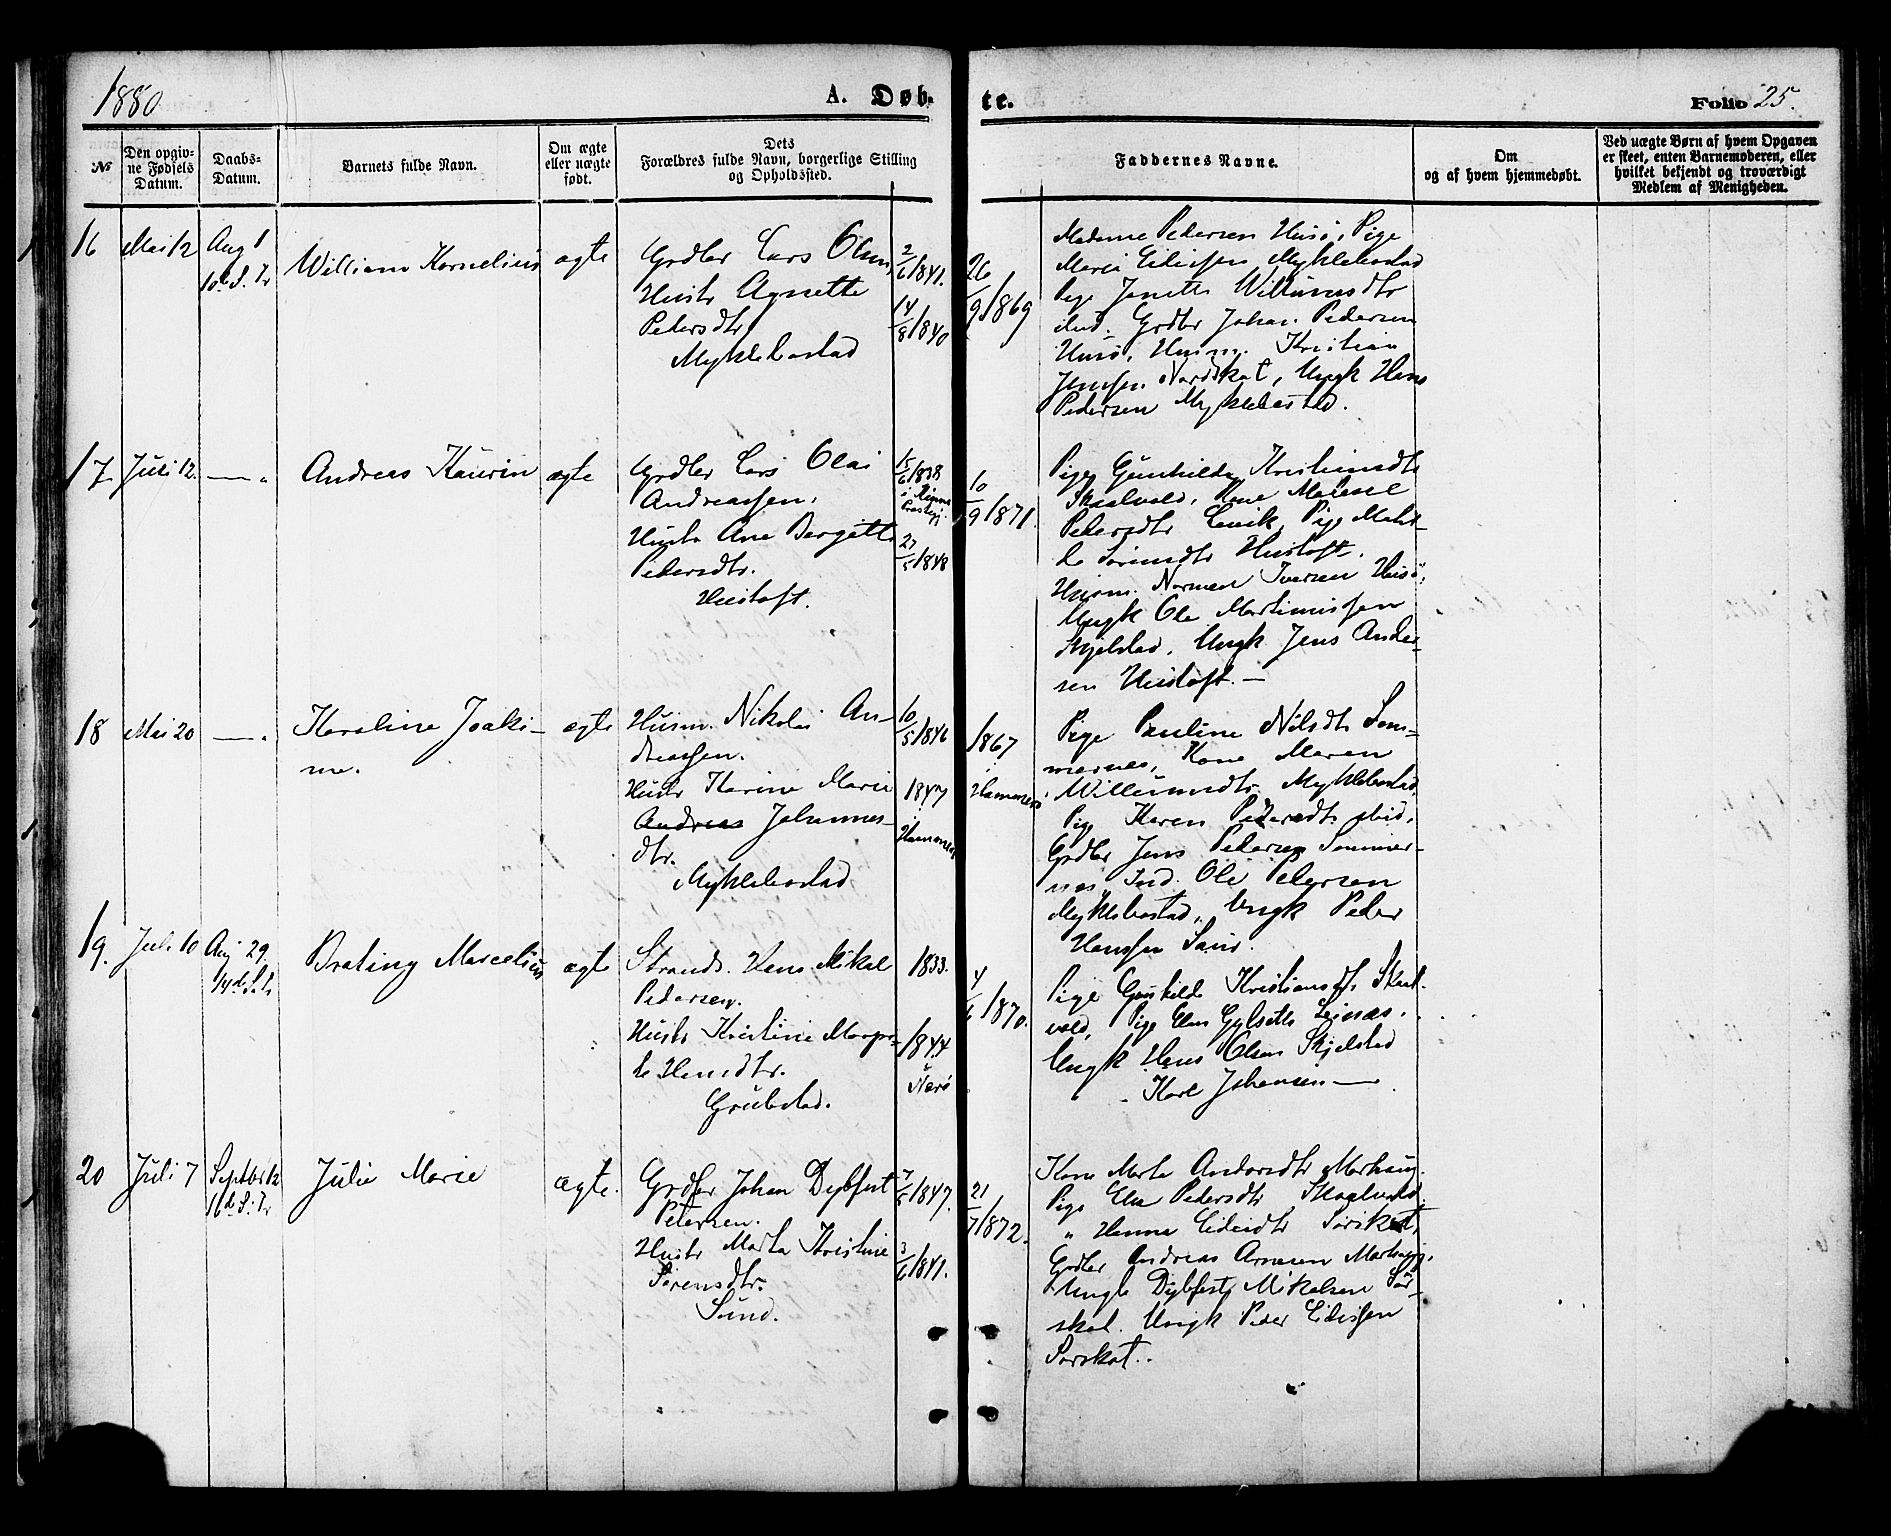 1880
A. Døb-
te.
Folio 25.
№
Den opgiv-
ne Fødsels
Datum.
Daabs-
Datum.
Barnets fulde Navn.
Om ægte
eller uægte
født.
Dets
Forældres fulde Navn, borgerlige Stilling
og Opholdssted.
Faddernes Navne.
Om
og af hvem hjemmedøbt.
Ved uægte Børn af hvem Opgaven
er skeet, enten Barnemoderen, eller
hvilket bekjendt og troværdigt
Medlem af Menigheden.
16 Mai 12 Aug 1
10de S. Tr
William Kornelius
ægte
Grdbr Lars Olsen
Hustr Agnette
Petersdtr
Myklebostad
2/6 1841.
14/8 1840
26/9 1869
Madame Pedersen Husø, Pige
Maria Eidissen Myklebostad
Pige Janette Willumsdtr
ibid. Grdbr Johan Pedersen
Husø, Husm. Kristian
Jenssen Nordskot, Ungk Hans
Pedersen Myklebostad.
17 Juli 12. — „
Andreas Kaurin
ægte
Grdbr Lars Olai
Andreassen,
Hustr Ane Bergitte
Pedersdtr.
Hustoft.
15/6 1838
27/5 1848
10/9 1871.
Pige Gunhilda Kristiansdtr
Skaalvold, Kone Malene
Pedersdtr Levik, Pige Maht-
le Sørensdtr Hustoft.
Husm. Normen Iversen Husø,
Ungk Ole Martinussen
Skjelstad, Ungk Jens Ander-
sen Hustoft. —
18 Mai 20 — „
Karoline Joaki-
me.
ægte
Husm. Nikolai An-
dreassen.
Hustr Karine Marie
Andreas Johannes-
dtr.
Myklebostad
10/5 1846
1847
i
Hammerø
1867
i
Hammerø
Pige Pauline Nilsdtr Som-
mernes, Kone Maren
Willumsdtr. Myklebostad
Pige Karen Pedersdtr ibid,
Grdbr Jens Pedersen Sommer-
nes, Ind. Ole Pedersen
Myklebostad, Ungk Peder
Hanssen Sund.
19. Juli 10 Aug 29.
14de S. Tr
Brating Marcelius
ægte
Strands. Hans Mikal
Pedersen.
Hustr Kristine Margre-
te Hansdtr.
Grubstad.
1833.
1844
i
Nærø
4/6 1870.
Pige Gunhilde Kristiansdtr Skaal-
vold, Pige Elen Gylseth Leinæs.
Ungk Hans Olsen Skjelstad
„ Karl Johansen —
20 Juli 7 Septbr 12
16de S. Tr
Julie Marie
ægte.
Grdbr Johan Dybfest
Petersen.
Hustr Marta Kristine
Sørensdtr.
Sund.
7/5 1847.
3/6 1841.
21/7 1872.
Kone Marta Andersdtr Marhaug.
Pige Elen Pedersdtr Skaalvold.
„ Hanna Eidisdtr Sørskot,
Grdbr Andreas Arnesen Marhaug,
Ungk Dybfest Mikalsen Sør-
skot. Ungk Peder Eidissen
Sørskot.